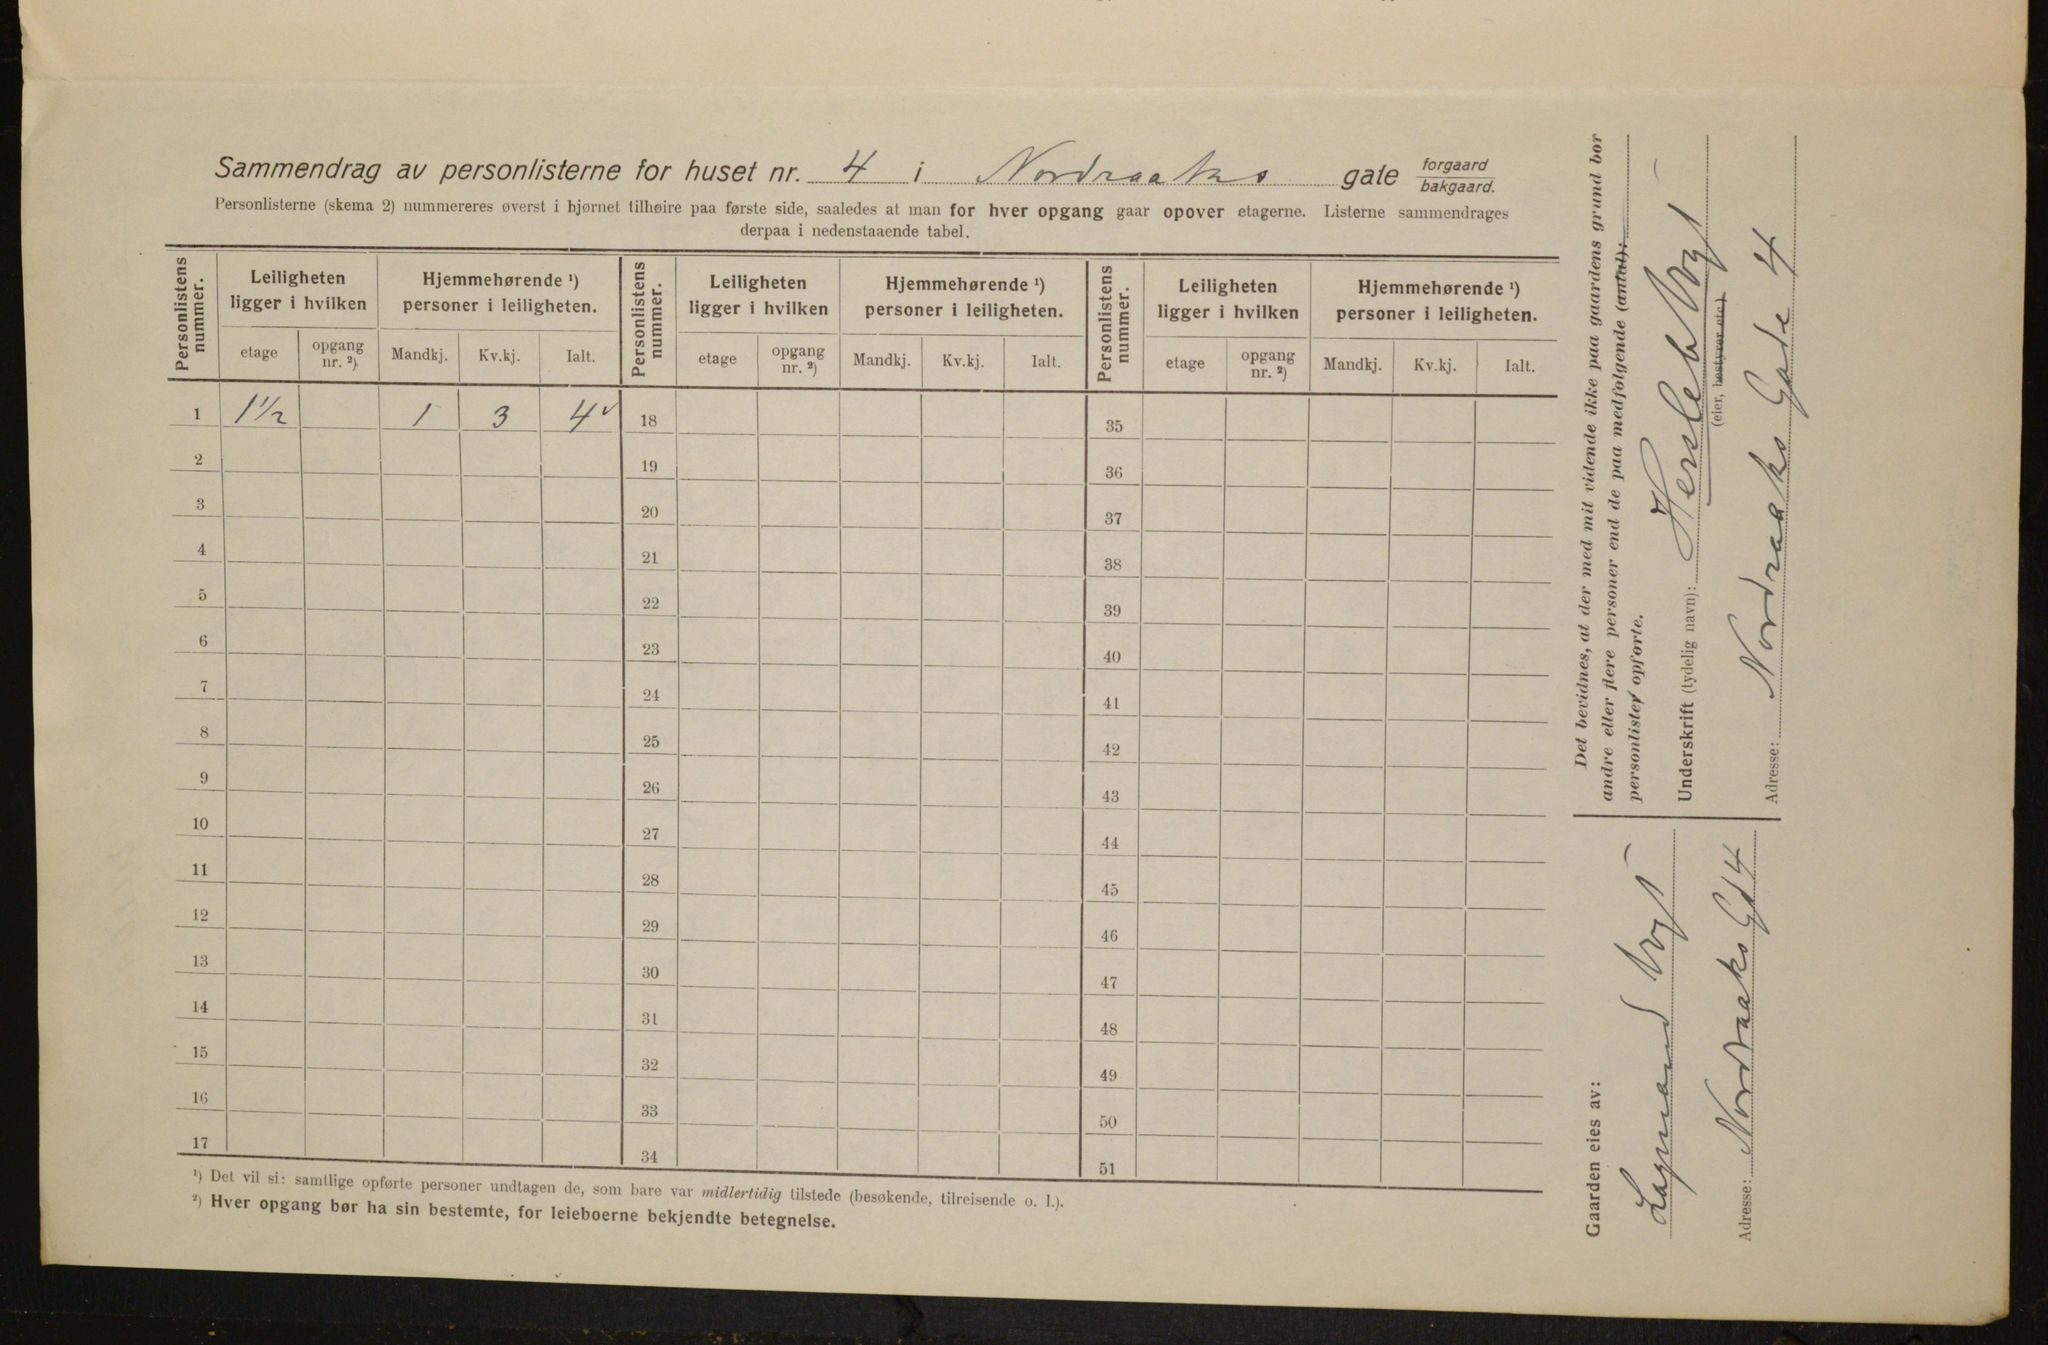 Sammendrag av personlisterne for huset nr. 4 i Nordraaks gate forgaard bakgaard.
Personlisterne (skema 2) nummereres øverst i hjørnet tilhøire paa første side, saaledes at man for hver opgang gaar opover etagerne. Listerne sammendrages
derpaa i nedenstaaende tabel.
Personlistens nummer. Leiligheten ligger i hvilken Hjemmehørende ¹) personer i leiligheten. Personlistens nummer. Leiligheten ligger i hvilken Hjemmehørende ¹) personer i leiligheten. Personlistens nummer. Leiligheten ligger i hvilken Hjemmehørende ¹) personer i leiligheten.
etage opgang nr. ²) Mandkj. Kv.kj. Ialt. etage opgang nr. ²) Mandkj. Kv.kj. Ialt. etage opgang nr. ²) Mandkj. Kv.kj. Ialt.
1 1 1/2 1 3 4 18 35
2 19 36
3 20 37
4 21 38
5 22 39
6 23 40
7 24 41
8 25 42
9 26 43
10 27 44
11 28 45
12 29 46
13 30 47
14 31 48
15 32 49
16 33 50
17 34 51
¹) Det vil si: samtlige opførte personer undtagen de, som bare var midlertidig tilstede (besøkende, tilreisende o. l.).
²) Hver opgang bør ha sin bestemte, for leieboerne bekjendte betegnelse.
Det bevidnes, at der med mit vidende ikke paa gaardens grund bor
andre eller flere personer end de paa medfølgende (antal):
personlister opførte.
Underskrift (tydelig navn): Hersleb Vogt
(eier, bestyrer etc.)
Adresse: Nordraaks Gade 4
Gaarden eies av:
Vogt
Adresse: Nordraaks Gd 4